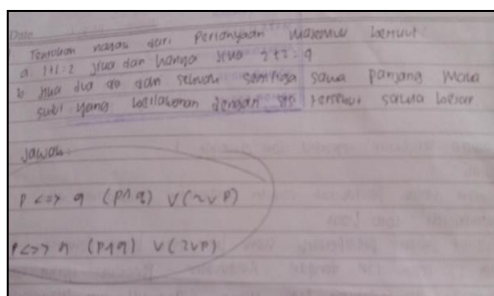 Tentukan negasi dari pertanyaan Matematika berikut:
a. 1+1=2 jika dan hanya jika 2+2=4
b. jika dua sisi dan sebuah segitiga sama panjang maka
sudut yang berlawanan dengan sisi tersebut sama besar
Jawab:
P <=> q (P∧q) ∨(~∨P)
P<=> q (P∧q) ∨(~∨P)